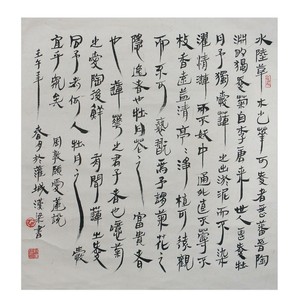 水陸草木之花可愛者甚蕃晉陶
渊明独愛菊自李唐来世人甚愛牡
丹予獨愛蓮之出淤泥而不染
濯清漣而不妖中通外直不蔓不
枝香遠益清亭亭淨植可遠觀
而不可褻翫焉予謂菊花之
隱逸者也牡丹花之富貴者
也蓮花之君子者也噫菊
之愛陶後鮮有聞蓮之愛
同予者何人牡丹之愛
宜乎衆矣 周敦頤愛蓮說
壬午年春月於蓮城 書